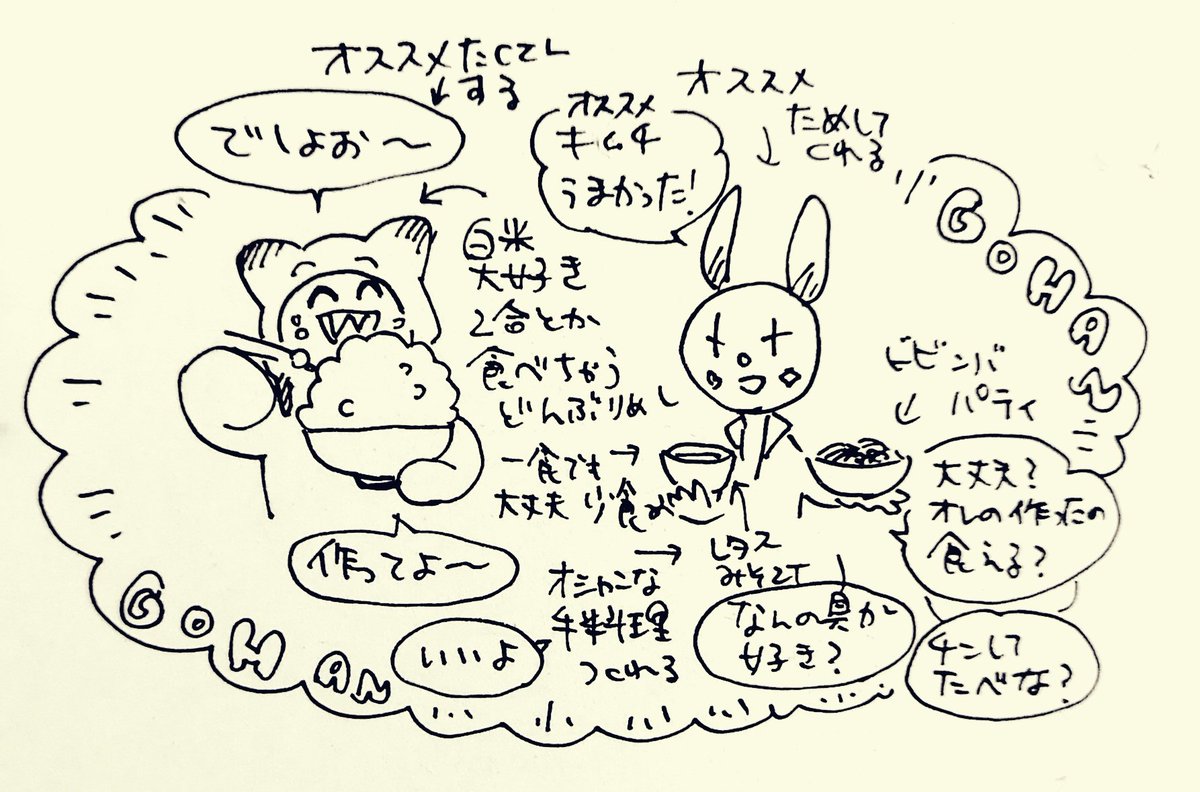 オススメたくさん
する
でしょお〜
オススメ
ためして
くれる
オススメ
キムチ
うまかった!
GOHAN
白米
大好き
2合とか
食べちゃう
どんぶりめし
一食でも
大丈夫
少食
ビビンバ
パティ
大丈夫?
オレの作ったの
食える?
チンして
たべな?
レタス
みそ汁
なんの具が
好き?
作ってよ〜
いいよ
オシャンな
料理
つくれる
GOHAN